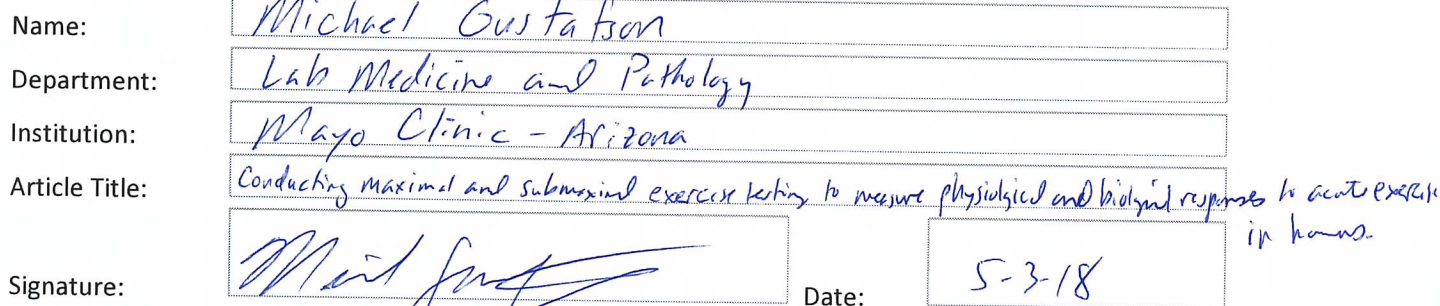 Name: Michael Gustafson
Department: Lab Medicine and Pathology
Institution: Mayo Clinic - Arizona
Article Title: Conducting maximal and submaximal exercise testing to measure physiological and biological responses to acute exercise
in humans.
Signature: Date: 5-3-18